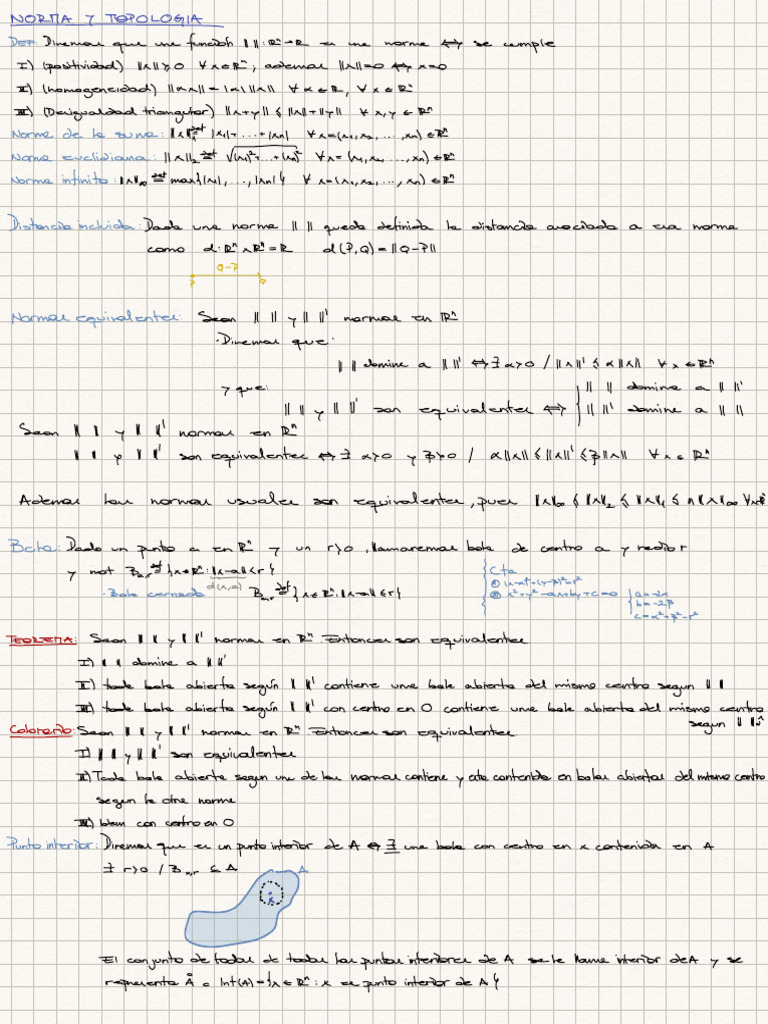 NORMA Y TOPOLOGIA
DEF: Diremos que una función ‖ ‖: ℝⁿ→ℝ es una norma ⇔ se cumple
I) (positividad) ‖x‖≥0 ∀x∈ℝⁿ; ademas ‖x‖=0 ⇔ x=0
II) (homogeneidad) ‖αx‖=|α|‖x‖ ∀α∈ℝ, ∀x∈ℝⁿ
III) (Desigualdad triangular) ‖x+y‖≤‖x‖+‖y‖ ∀x,y∈ℝⁿ
Norma de la suma: ‖x‖₁ def= |x₁|+...+|xn| ∀x=(x₁,x₂,...,xn)∈ℝⁿ
Norma euclidiana: ‖x‖₂ def= √(x₁)²+...+(xn)² ∀x=(x₁,x₂,...,xn)∈ℝⁿ
Norma infinito: ‖x‖∞ def= max{|x₁|,...,|xn|} ∀x=(x₁,x₂,...,xn)∈ℝⁿ
Distancia incluida: Dada una norma ‖ ‖ queda definida la distancia asociada a esa norma
como d: ℝⁿ×ℝⁿ=ℝ d(P,Q)=‖Q-P‖
Q-P
P Q
Normas equivalentes: Sean ‖ ‖ y ‖ ‖' normas en ℝⁿ
·Diremos que:
‖ ‖ domina a ‖ ‖' ⇔ ∃ α>0 / ‖x‖'≤α‖x‖ ∀x∈ℝⁿ
y que:
‖ ‖ y ‖ ‖' son equivalentes ⇔ { ‖ ‖ domina a ‖ ‖'
‖ ‖' domina a ‖ ‖
Sean ‖ ‖ y ‖ ‖' normas en ℝⁿ
‖ ‖ y ‖ ‖' son equivalentes ⇔ ∃ α>0 y β>0 / α‖x‖≤‖x‖'≤β‖x‖ ∀x∈ℝⁿ
Ademas las normas usuales son equivalentes, pues ‖x‖∞≤‖x‖₂≤‖x‖₁≤n‖x‖∞ ∀x∈ℝⁿ
Bola: Dado un punto a en ℝⁿ y un r>0, llamaremos bola de centro a y radio r
y not B_{a,r} def= {x∈ℝⁿ: ‖x-a‖<r}
d(x,a)
·Bola cerrada B_{a,r} def= {x∈ℝⁿ: ‖x-a‖≤r}
Cfa
① (x-α)²+(y-β)²=r²
② x²+y²-ax+by+c=0 { a=-2α
b=-2β
c=α²+β²-r²
TEOREMA: Sean ‖ ‖ y ‖ ‖' normas en ℝⁿ. Entonces son equivalentes
I) ‖ ‖ domina a ‖ ‖'
II) toda bola abierta según ‖ ‖' contiene una bola abierta del mismo centro segun ‖ ‖
III) toda bola abierta según ‖ ‖' con centro en 0 contiene una bola abierta del mismo centro
segun ‖ ‖
Colorario: Sean ‖ ‖ y ‖ ‖' normas en ℝⁿ. Entonces son equivalentes
I) ‖ ‖ y ‖ ‖' son equivalentes
II) Toda bola abierta segun una de las normas contiene y esta contenida en bolas abiertas del mismo centro
segun la otra norma
III) Idem con centro en 0
Punto interior: Diremos que es un punto interior de A ⇔ ∃ una bola con centro en x contenida en A
∃ r>0 / B_{x,r} ⊆ A
A
x
El conjunto de todas de todos los puntos interiores de A se le llama interior de A y se
representa Å o Int(A)={x∈ℝⁿ: x es punto interior de A}